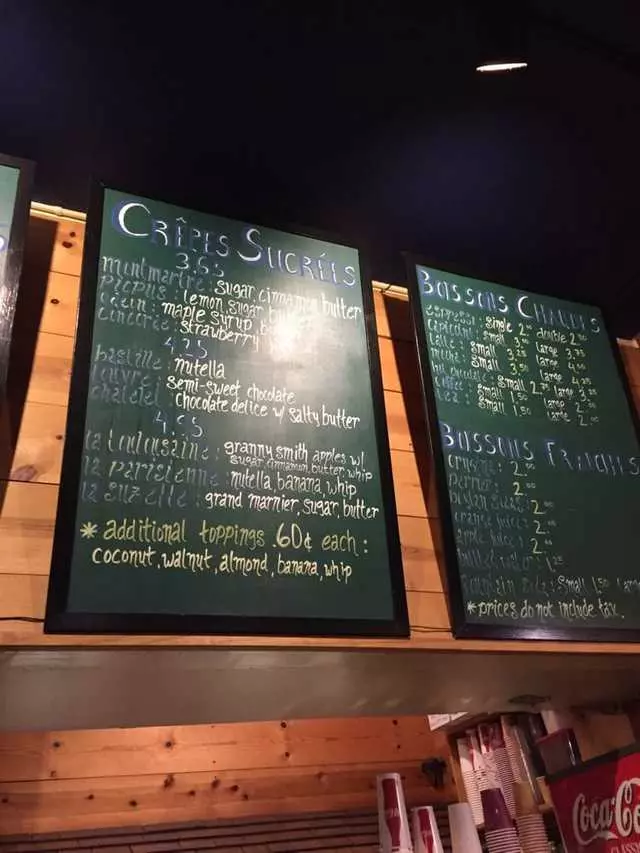 CRÊPES SUCRÉES
3.65
montmartre: sugar, cinnamon, butter
picpus: lemon, sugar, butter
maple syrup,
concorde: strawberry
4.25
bastille: nutella
louvre: semi-sweet chocolate
chatelet: chocolate delice w/ salty butter
4.95
la toulousaine: granny smith apples w/
sugar, cinnamon, butter, whip
la parisienne: nutella, banana, whip
la suzette: grand marnier, sugar, butter
* additional toppings .60¢ each:
coconut, walnut, almond, banana, whip
BOISSONS CHAUDES
espresso: single 2.00 double 2.50
small 3.00 large 3.75
small 3.25 large
small 3.50 large
small 2.75 large
small 1.50 large
small 1.50 large 2.00
BOISSONS FRAICHES
2.00
perrier: 2.00
2.00
orange juice: 2.00
apple juice: 2.00
1.25
small 1.50 large
* prices do not include tax.
Coca-Co
CLASSIC